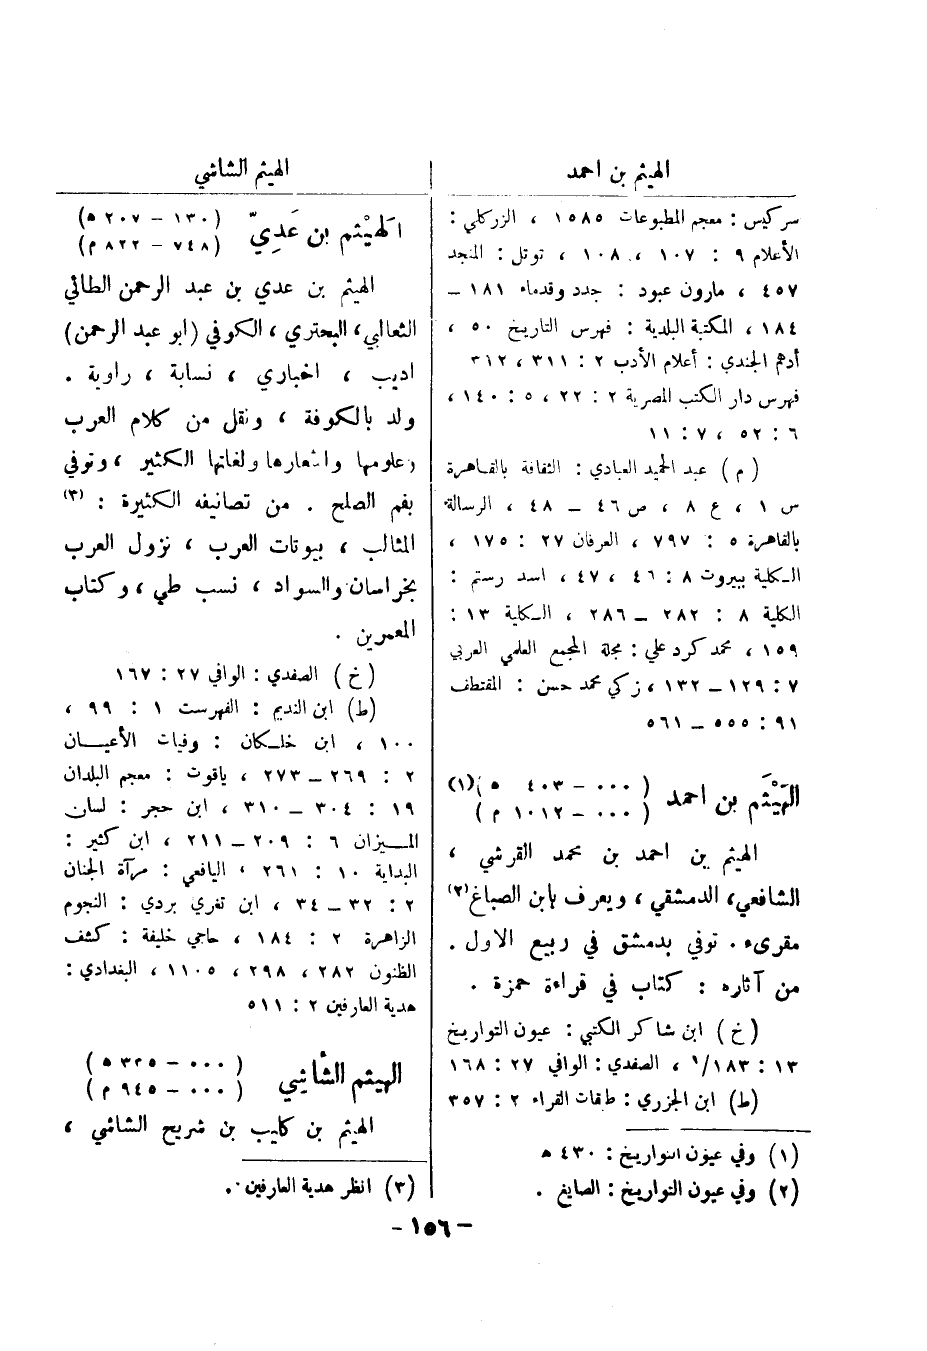 الهيثم بن احمد
سركيس : معجم المطبوعات ١٥٨٥ ، الزركلي :
الأعلام ٩ : ١٠٧ ، ١٠٨ ، توتل : المنجد
٤٥٧ ، مارون عبود : جدد وقدماء ١٨١ –
١٨٤ ، المكتبة البلدية : فهرس التاريخ ٥٠ ،
أدهم الجندي : أعلام الأدب ٢ : ٣١١ ، ٣١٢
فهرس دار الكتب المصرية ٢ : ٢٢ ، ٥ : ١٤٠ ،
٦ : ٥٢ ، ٧ : ١١
( م ) عبد الحميد العبادي : الثقافة بالقاهرة
س ١ ، ع ٨ ، ص ٤٦ – ٤٨ ، الرسالة
بالقاهرة ٥ : ٧٩٧ ، العرفان ٢٧ : ١٧٥ ،
الكلية ببيروت ٨ : ٤٦ ، ٤٧ ، اسد رستم :
الكلية ٨ : ٢٨٢ – ٢٨٦ ، الكلية ١٣ :
١٥٩ ، محمد كرد علي : مجلة المجمع العلمي العربي
٧ : ١٢٩ – ١٣٢ ، زكي محمد حسن : المقتطف
٩١ : ٥٥٥ – ٥٦١
الهَيْثَم بن احمد ( ٠٠٠ – ٤٠٣ ه )(١)
( ٠٠٠ – ١٠١٢ م )
الهيثم بن احمد بن محمد القرشي ،
الشافعي ، الدمشقي ، ويعرف بابن الصباغ(٢)
مقرىء . توفي بدمشق في ربيع الاول .
من آثاره : كتاب في قراءة حمزة .
( خ ) ابن شاكر الكتبي : عيون التواريخ
١٣ : ١٨٣/ ١ ، الصفدي : الوافي ٢٧ : ١٦٨
(ط) ابن الجزري : طبقات القراء ٢ : ٣٥٧
(١) وفي عيون التواريخ : ٤٣٠ ه
(٢) وفي عيون التواريخ : الصايغ .
الهيثم الشاشي
الهَيْثم بن عَدِيّ (١٣٠ – ٢٠٧ ه)
(٧٤٨ – ٨٢٢ م)
الهيثم بن عدي بن عبد الرحمن الطائي
الثعالبي ، البحتري ، الكوفي (ابو عبد الرحمن)
اديب ، اخباري ، نسابة ، راوية .
ولد بالكوفة ، ونقل من كلام العرب
وعلومها واشعارها ولغاتها الكثير ، وتوفي
بفم الصلح . من تصانيفه الكثيرة : (٣)
المثالب ، بيوتات العرب ، نزول العرب
بخراسان والسواد ، نسب طي ، وكتاب
المعمرين .
( خ ) الصفدي : الوافي ٢٧ : ١٦٧
(ط) ابن النديم : الفهرست ١ : ٩٩ ،
١٠٠ ، ابن خلكان : وفيات الأعيان
٢ : ٢٦٩ – ٢٧٣ ، ياقوت : معجم البلدان
١٩ : ٣٠٤ – ٣١٠ ، ابن حجر : لسان
الميزان ٦ : ٢٠٩ – ٢١١ ، ابن كثير :
البداية ١٠ : ٢٦١ ، اليافعي : مرآة الجنان
٢ : ٣٢ – ٣٤ ، ابن تغري بردي : النجوم
الزاهرة ٢ : ١٨٤ ، حاجي خليفة : كشف
الظنون ٢٨٢ ، ٢٩٨ ، ١١٠٥ ، البغدادي :
هدية العارفين ٢ : ٥١١
الهيثم الشَّاشِي ( ٠٠٠ – ٣٣٥ ه )
( ٠٠٠ – ٩٤٥ م )
الهيثم بن كليب بن شريح الشاشي ،
(٣) انظر هدية العارفين .
– ١٥٦ –